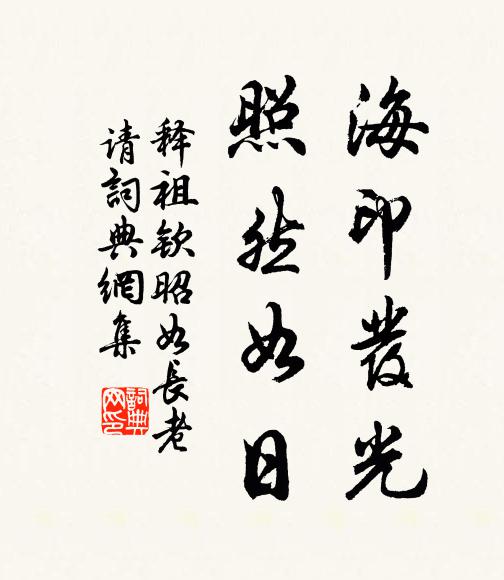 海印發光
照然如日
释祖钦昭如長老
请詞典網集
詞典
网印